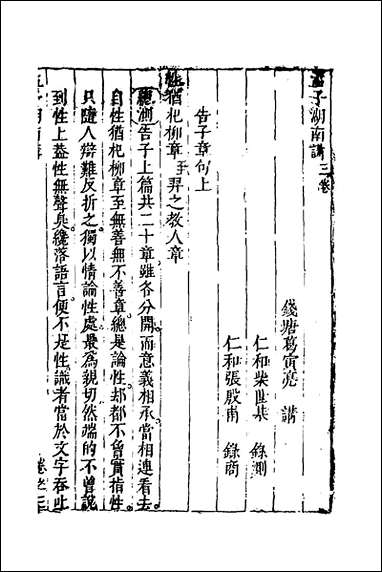 孟子湖南講三卷
錢塘葛寅亮 講
仁和柴世基 錄測
仁和張殷甫 錄商
告子章句上
性猶杞柳章至羿之教人章
總測告子上篇共二十章雖各分開而意義相承當相連看去
自性猶杞柳章至無善無不善章總是論性却都不曾實指性
只隨人辯難反折之獨以情論性處最為親切然端的不曾說
到性上葢性無聲臭纔落語言便不是性識者當於文字吞吐